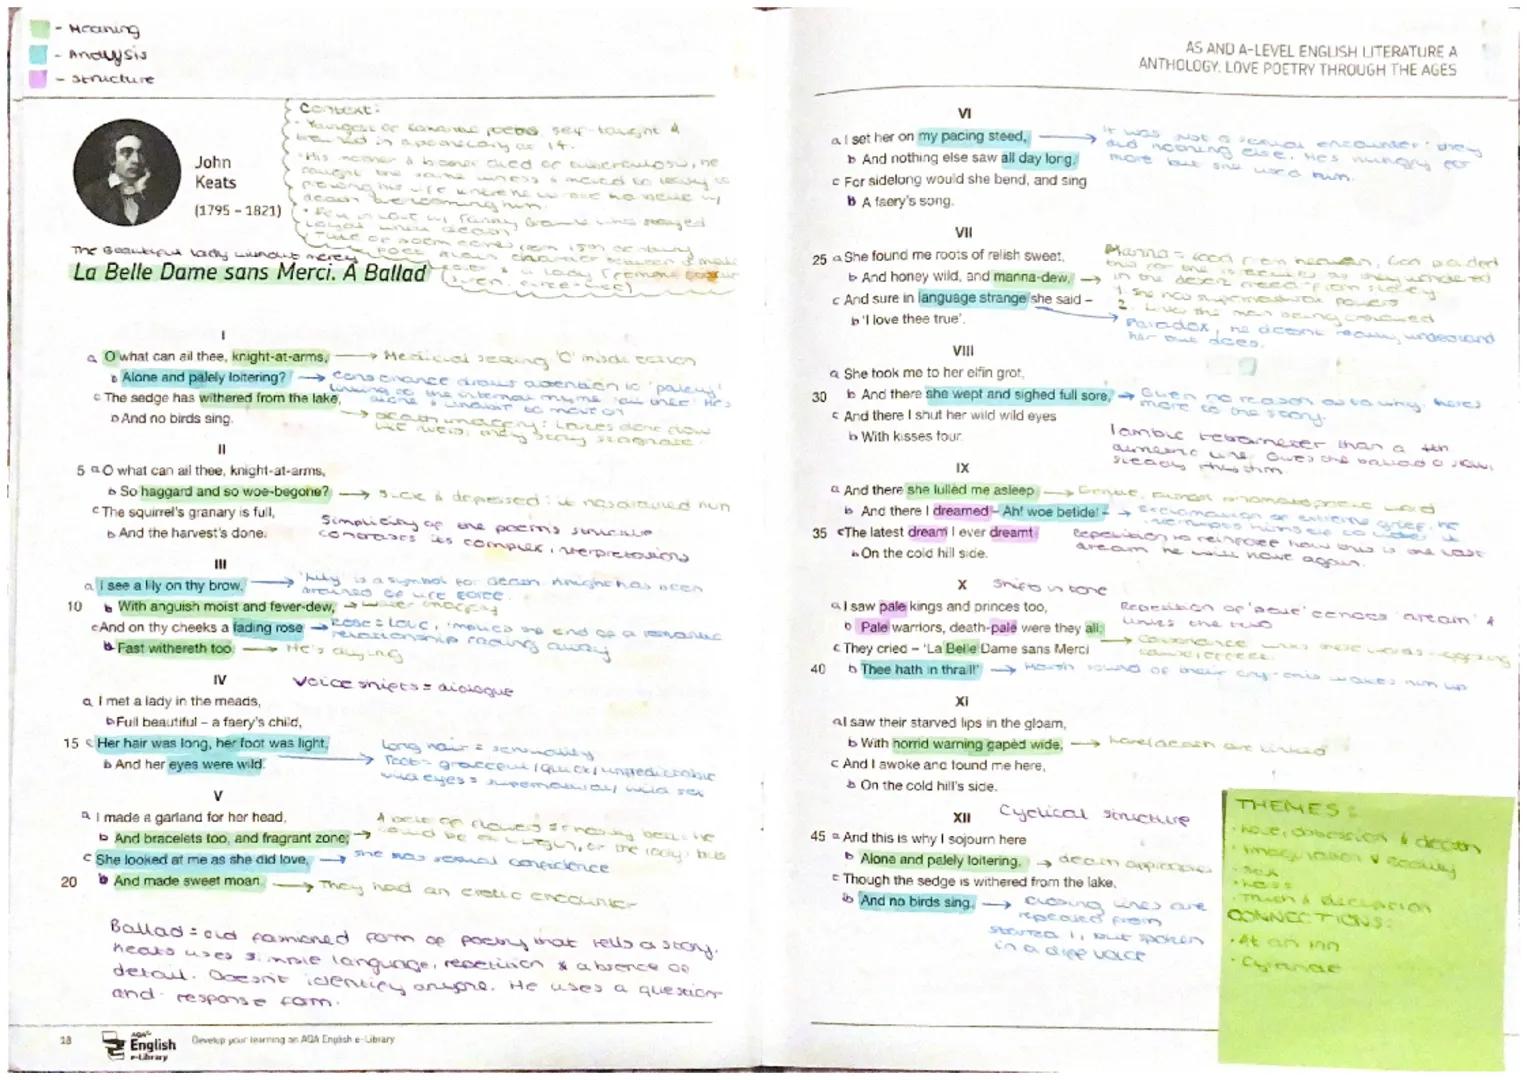 - Meaning
- Analysis
- Structure
Context:
Youngest of romantic poets, self-taught &
trained in apothecary at 14.
His mother & brother died of tuberculosis, he
caught the same illness & moved to Italy to
death overcoming him.
Fell in love w/ Fanny Brawne who stayed
loyal until death
Title of poem comes from 15th century
John
Keats
(1795 - 1821)
The Beautiful lady without mercy
La Belle Dame sans Merci. A Ballad
I
a O what can ail thee, knight-at-arms, → Medieval setting 'O' mode
b Alone and palely loitering? → Consonance draws attention to 'palely'
c The sedge has withered from the lake,
b And no birds sing. → death imagery:
II
5 a O what can ail thee, knight-at-arms,
b So haggard and so woe-begone? → sick & depressed: it has drained him
c The squirrel's granary is full,
b And the harvest's done.
Simplicity of the poem's structure
contrasts its complex interpretations
III
a I see a lily on thy brow, → 'Lily' is a symbol for death. Knight has been
drained of life force.
10 b With anguish moist and fever-dew, → water imagery
c And on thy cheeks a fading rose → Rose = love, implies the end of a romantic
relationship fading away
b Fast withereth too. → He's dying
IV Voice shifts = dialogue
a I met a lady in the meads,
b Full beautiful – a faery's child,
15 c Her hair was long, her foot was light,
b And her eyes were wild.
Long hair = sensuality
Foot = graceful/quick/unpredictable
wild eyes = supernatural/wild sex
V
a I made a garland for her head,
b And bracelets too, and fragrant zone; →
c She looked at me as she did love, → she has sexual confidence
20 b And made sweet moan. → They had an erotic encounter
Ballad = old fashioned form of poetry that tells a story.
Keats uses simple language, repetition & absence of
detail. Doesn't identify anyone. He uses a question
and response form.
18
AQA
English
e-Library
Develop your learning on AQA English e-Library
AS AND A-LEVEL ENGLISH LITERATURE A
ANTHOLOGY. LOVE POETRY THROUGH THE AGES
VI
a I set her on my pacing steed, → It was just a sexual encounter: they
b And nothing else saw all day long,
did nothing else. He's hungry for
more but she used him.
c For sidelong would she bend, and sing
b A faery's song.
VII
25 a She found me roots of relish sweet,
b And honey wild, and manna-dew, →
c And sure in language strange she said –
b 'I love thee true'.
Manna = food from heaven, God provided
1. She has supernatural powers
Paradox, he doesn't really understand
her but does.
VIII
a She took me to her elfin grot,
30 b And there she wept and sighed full sore, → Given no reason as to why, there's
more to the story.
c And there I shut her wild wild eyes
b With kisses four.
Iambic tetrameter then a 4th
dimetric line gives the ballad a slow,
steady rhythm
IX
a And there she lulled me asleep →
b And there I dreamed – Ah! woe betide! – → exclamation of extreme grief, he
35 c The latest dream I ever dreamt
b On the cold hill side.
Repetition to reinforce how this is the last
dream he will have again.
X Shifts in tone
a I saw pale kings and princes too,
b Pale warriors, death-pale were they all;
Repetition of 'pale' echoes 'dream' &
links the two
c They cried – 'La Belle Dame sans Merci
40 b Thee hath in thrall!' → Harsh sound of their cry - this wakes him up
XI
a I saw their starved lips in the gloam,
b With horrid warning gaped wide, → love/death are linked
c And I awoke and found me here,
b On the cold hill's side.
XII Cyclical structure
45 a And this is why I sojourn here
b Alone and palely loitering, → death approaches
c Though the sedge is withered from the lake,
b And no birds sing. → closing lines are
repeated from
stanza 1, but spoken
in a diff voice
THEMES:
· Love, obsession & death
· Imagination v reality
· Sex
· Loss
· Truth & deception
CONNECTIONS:
· At an inn
· Cynarae